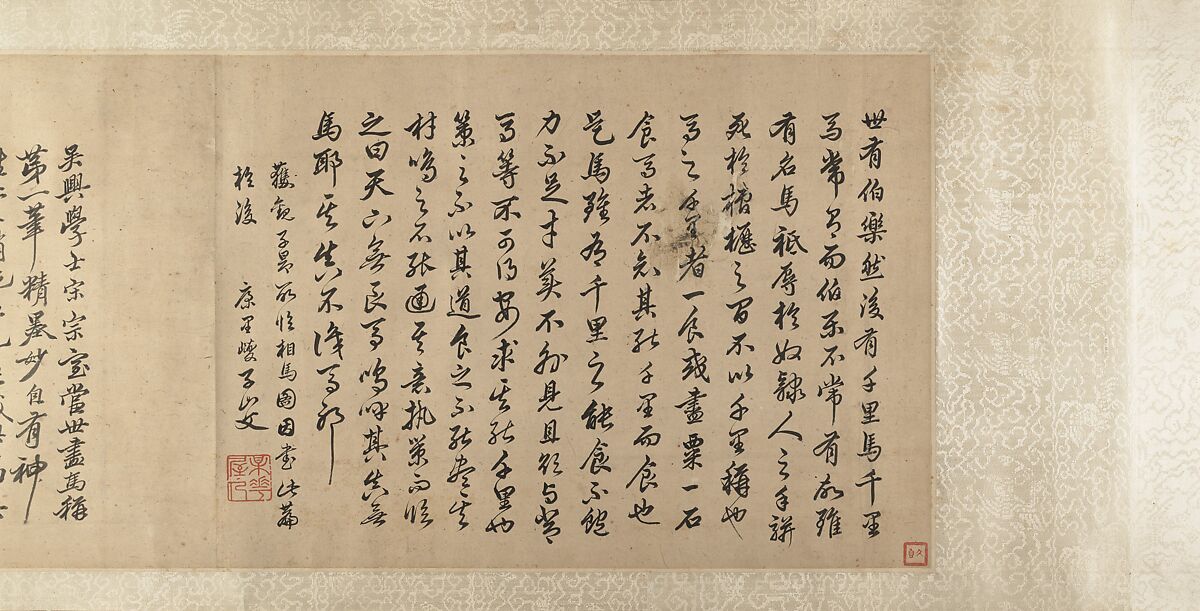 世有伯樂然後有千里馬千里
馬常有而伯樂不常有故雖
有名馬祗辱於奴隸人之手駢
死於槽櫪之間不以千里稱也
馬之千里者一食或盡粟一石
食馬者不知其能千里而食也
是馬雖有千里之能食不飽
力不足才美不外見且欲與常
馬等不可得安求其能千里也
策之不以其道食之不能盡其
材鳴之不能通其意執策而臨
之曰天下無良馬嗚呼其真無
馬耶其真不識馬耶
獲觀子昂所臨相馬圖因書此篇
於後 康里巎子山
吳興學士宋宗室當世畫馬稱
第一筆精墨妙自有神